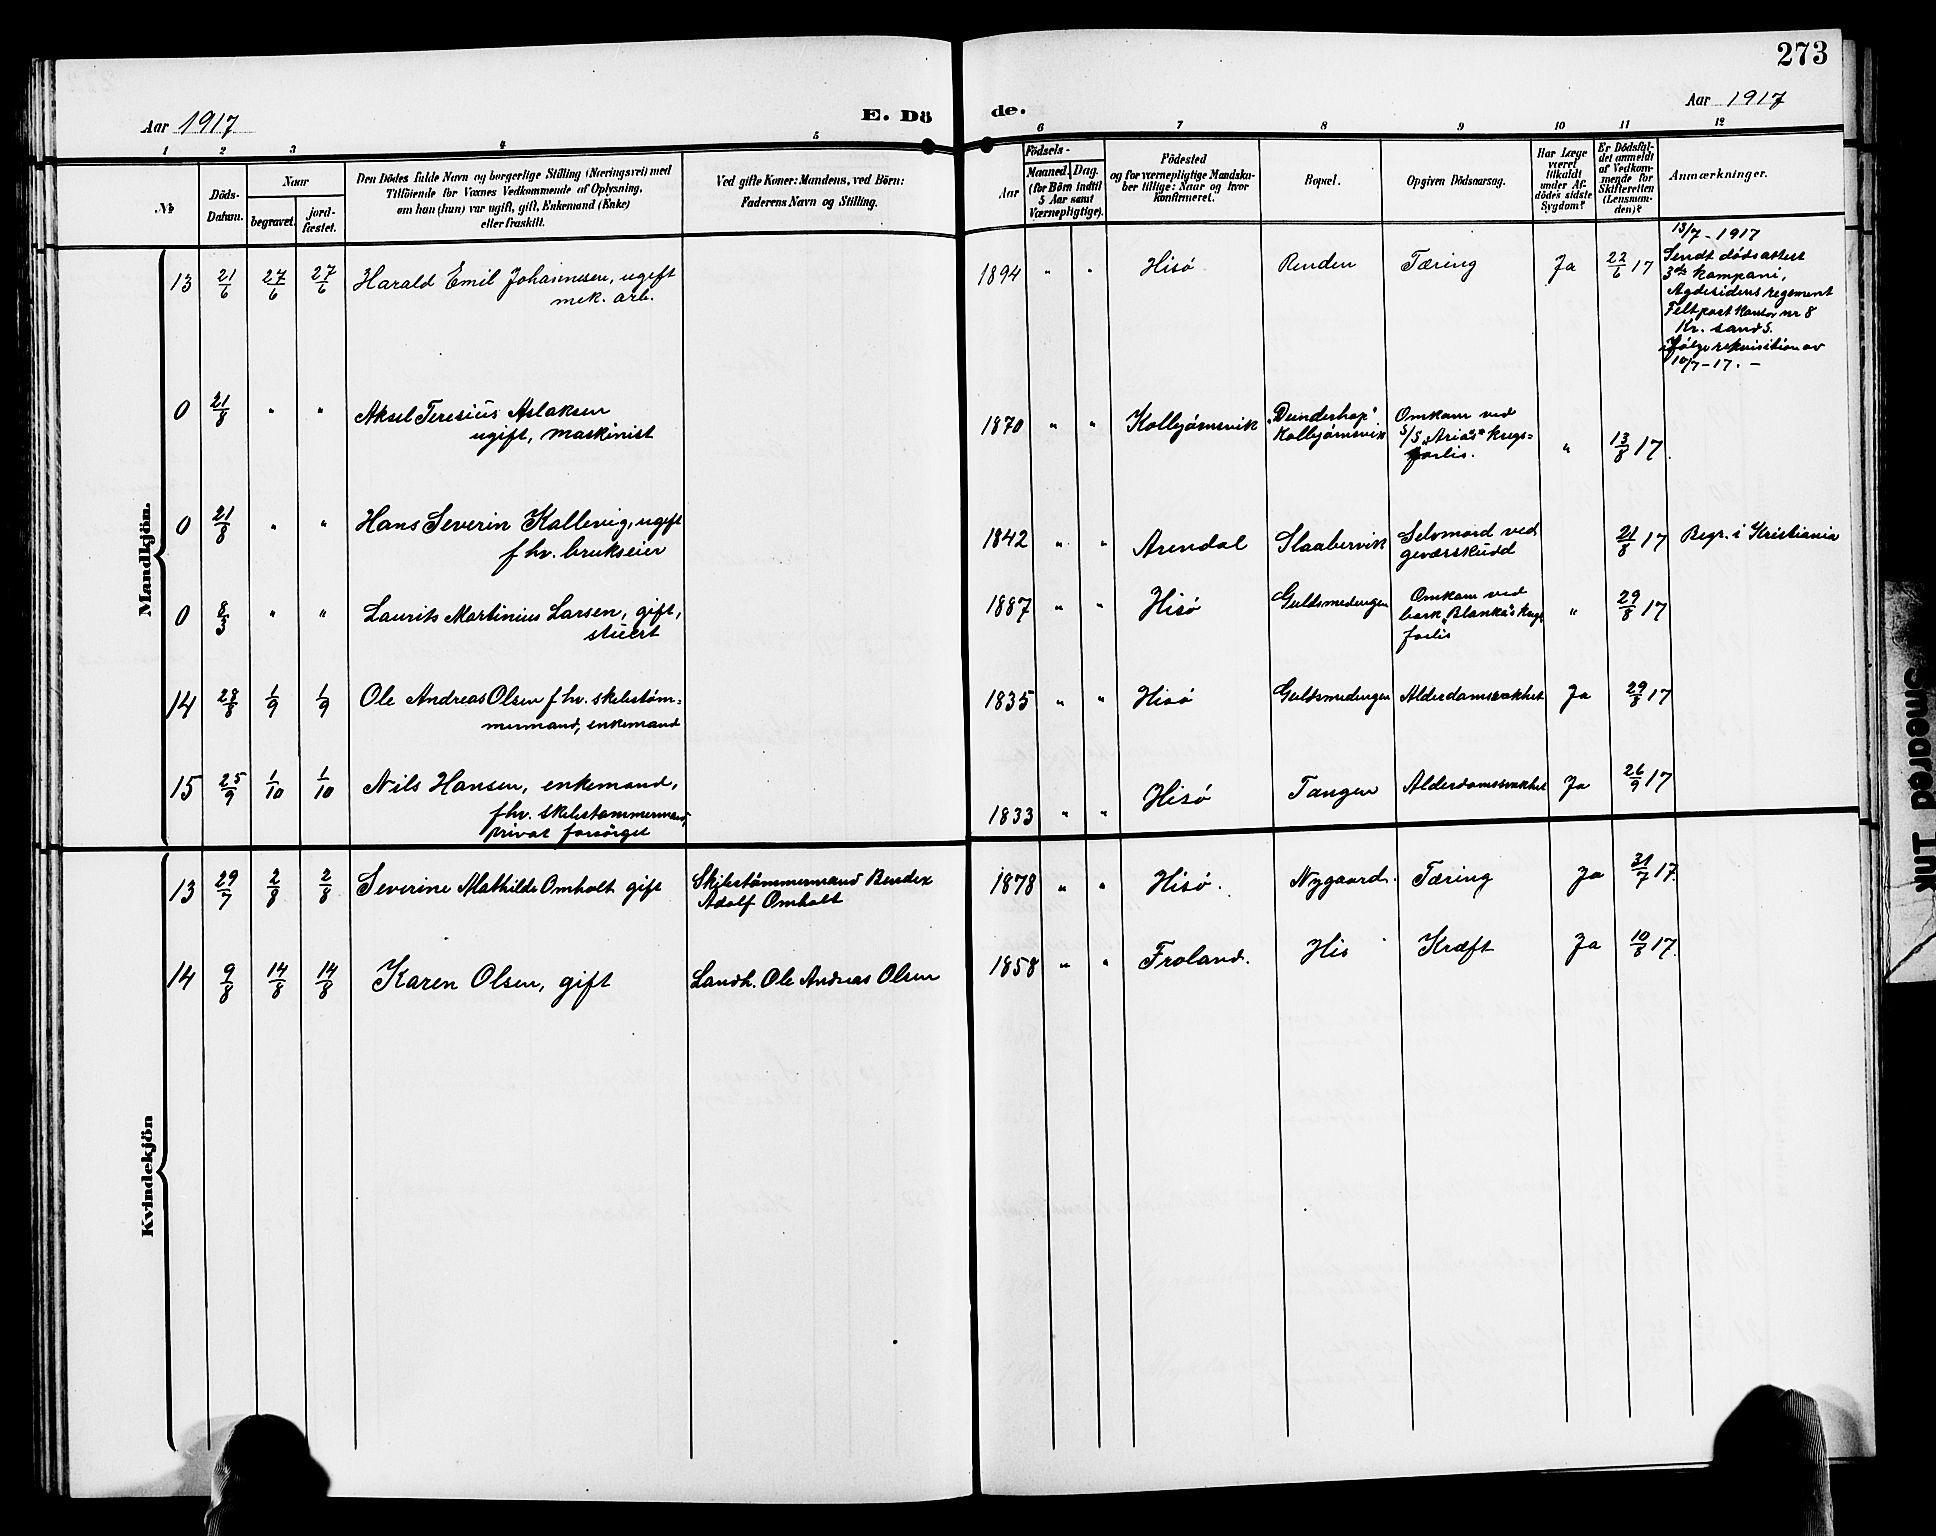 273
Aar 1917
E. Dö de.
Aar 1917
1 2 3 4 5 6 7 8 9 10 11 12
№
Döds-
Datum.
Naar
begravet.
jord-
fæstet.
Den Dödes fulde Navn og borgerlige Stilling (Næringsvei) med
Tilföiende for Voxnes Vedkommende af Oplysning,
om han (hun) var ugift, gift, Enkemand (Enke)
eller fraskilt.
Ved gifte Koner: Mandens, ved Börn:
Faderens Navn og Stilling.
Födsels-
Aar
Maaned. Dag.
(for Börn indtil
5 Aar samt
Værnepligtige).
Födested
og for værnepligtige Mandska-
ber tillige: Naar og hvor
konfirmeret.
Bopæl.
Opgiven Dödsaarsag.
Har Læge
været
tilkaldt
under Af-
dödes sidste
Sygdom?
Er Dödsfal-
det anmeldt
af Vedkom-
mende for
Skifteretten
(Lensman-
den)?
Anmærkninger.
Mandkjön.
13 21/6 27/6 27/6 Harald Emil Johannesen, ugift
mek. arb.
1894 " " Hisö Renden Tæring Ja 22/6 17
13/7 - 1917
Sendt dødsattest
3die kompani,
Agdesidens regement
Feltpost kontor nr 8
Kr. sand S.
ifølge rekvisition av
10/7 - 17. -
0 21/8 " " Aksel Teresius Aslaksen
ugift, maskinist
1870 " " Kolbjørnsvik
Kolbjørnsvik
Omkom ved
S/S "Arias" krigs=
forlis.
" 13/8 17.
0 21/8 " " Hans Severin Kallevig, ugift
fhv. brukseier
1842 " " Arendal Slaabervik Selvmord ved
geværskudd
21/8 17 Begr. i Kristiania
0 8/3 " " Laurits Martinius Larsen, gift,
stuert
1887 " " Hisö Guldsmedengen Omkom ved
bark "Blanka's" krigs
forlis
" 29/8 17
14 28/8 1/9 1/9 Ole Andreas Olsen fhv. skibstøm=
mermand, enkemand
1835 " " Hisö Guldsmedengen Alderdomssvakhet Ja 29/8 17
15 25/9 1/10 1/10 Nils Hansen, enkemand,
fhv. skibstømmermand,
privat forsörget
1833 " " Hisö Tangen Alderdomssvakhet Ja 26/9 17
Kvindekjön
13 29/7 2/8 2/8 Severine Mathilde Omholt gift
Skibstømmermand Bendix
Adolf Omholt
1878 " " Hisö. Nygaard. Tæring Ja 31/7 17.
14 9/8 14/8 14/8 Karen Olsen, gift
Landh. Ole Andreas Olsen
1858 " " Froland. His Kræft Ja 10/8 17.
Smeared Ink